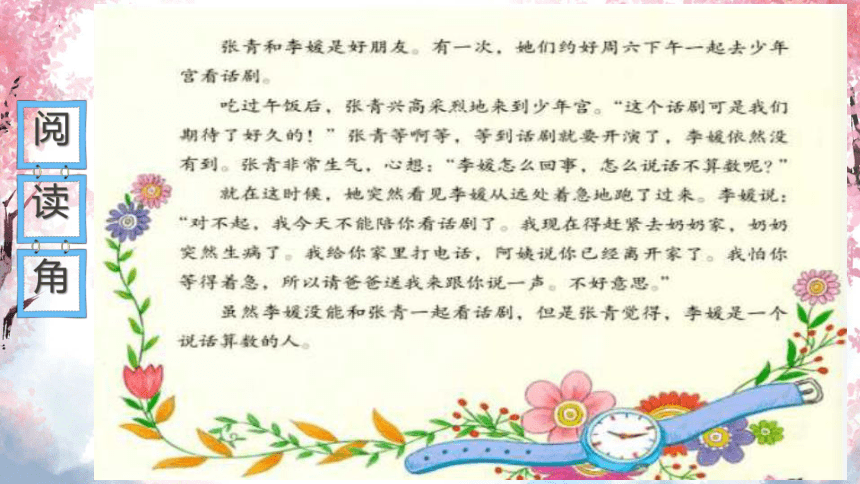 阅
读
角
张青和李媛是好朋友。有一次，她们约好周六下午一起去少年
宫看话剧。
吃过午饭后，张青兴高采烈地来到少年宫。“这个话剧可是我们
期待了好久的！”张青等啊等，等到话剧就要开演了，李媛依然没
有到。张青非常生气，心想：“李媛怎么回事，怎么说话不算数呢？”
就在这时候，她突然看见李媛从远处着急地跑了过来。李媛说：
“对不起，我今天不能陪你看话剧了。我现在得赶紧去奶奶家，奶奶
突然生病了。我给你家里打电话，阿姨说你已经离开家了。我怕你
等得着急，所以请爸爸送我来跟你说一声。不好意思。”
虽然李媛没能和张青一起看话剧，但是张青觉得，李媛是一个
说话算数的人。